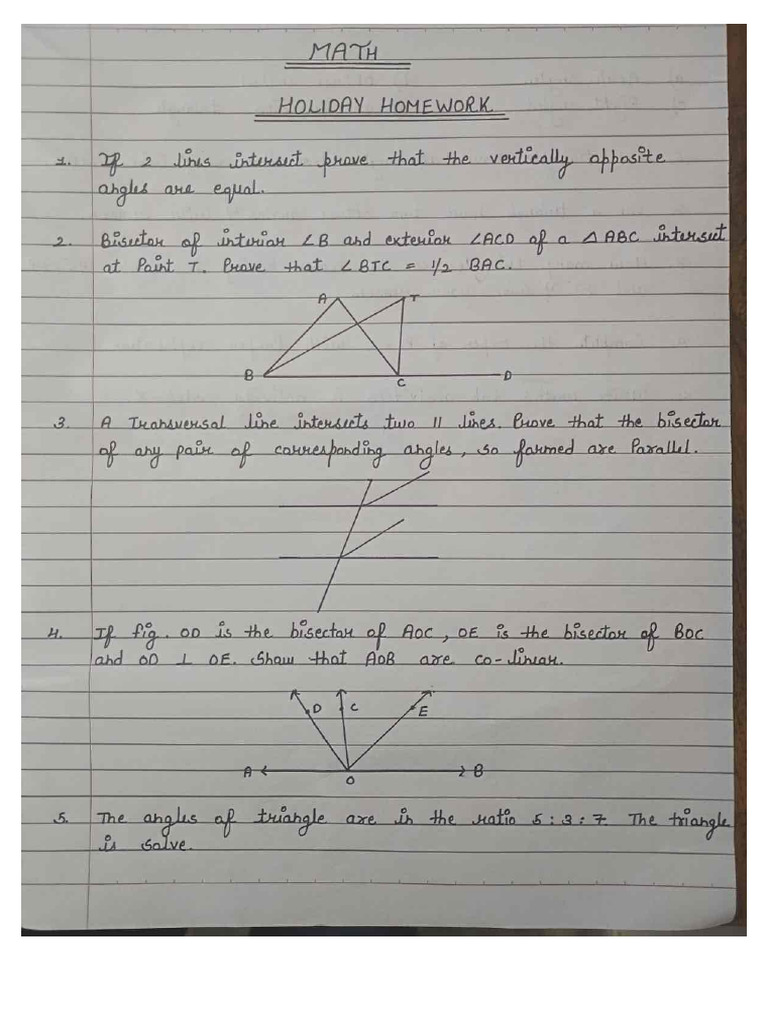 MATH
HOLIDAY HOMEWORK
1. If 2 lines intersect prove that the vertically opposite
angles are equal.
2. Bisector of interior ∠B and exterior ∠ACD of a △ ABC intersect
at Point T. Prove that ∠BTC = 1/2 BAC.
A T
B C D
3. A Transversal line intersects two || lines. Prove that the bisector
of any pair of corresponding angles, so formed are Parallel.
4. If fig. OD is the bisector of AOC, OE is the bisector of BOC
and OD ⊥ OE. Show that AOB are co-linear.
D C E
A B
O
5. The angles of triangle are in the ratio 5:3:7. The triangle
is solve.